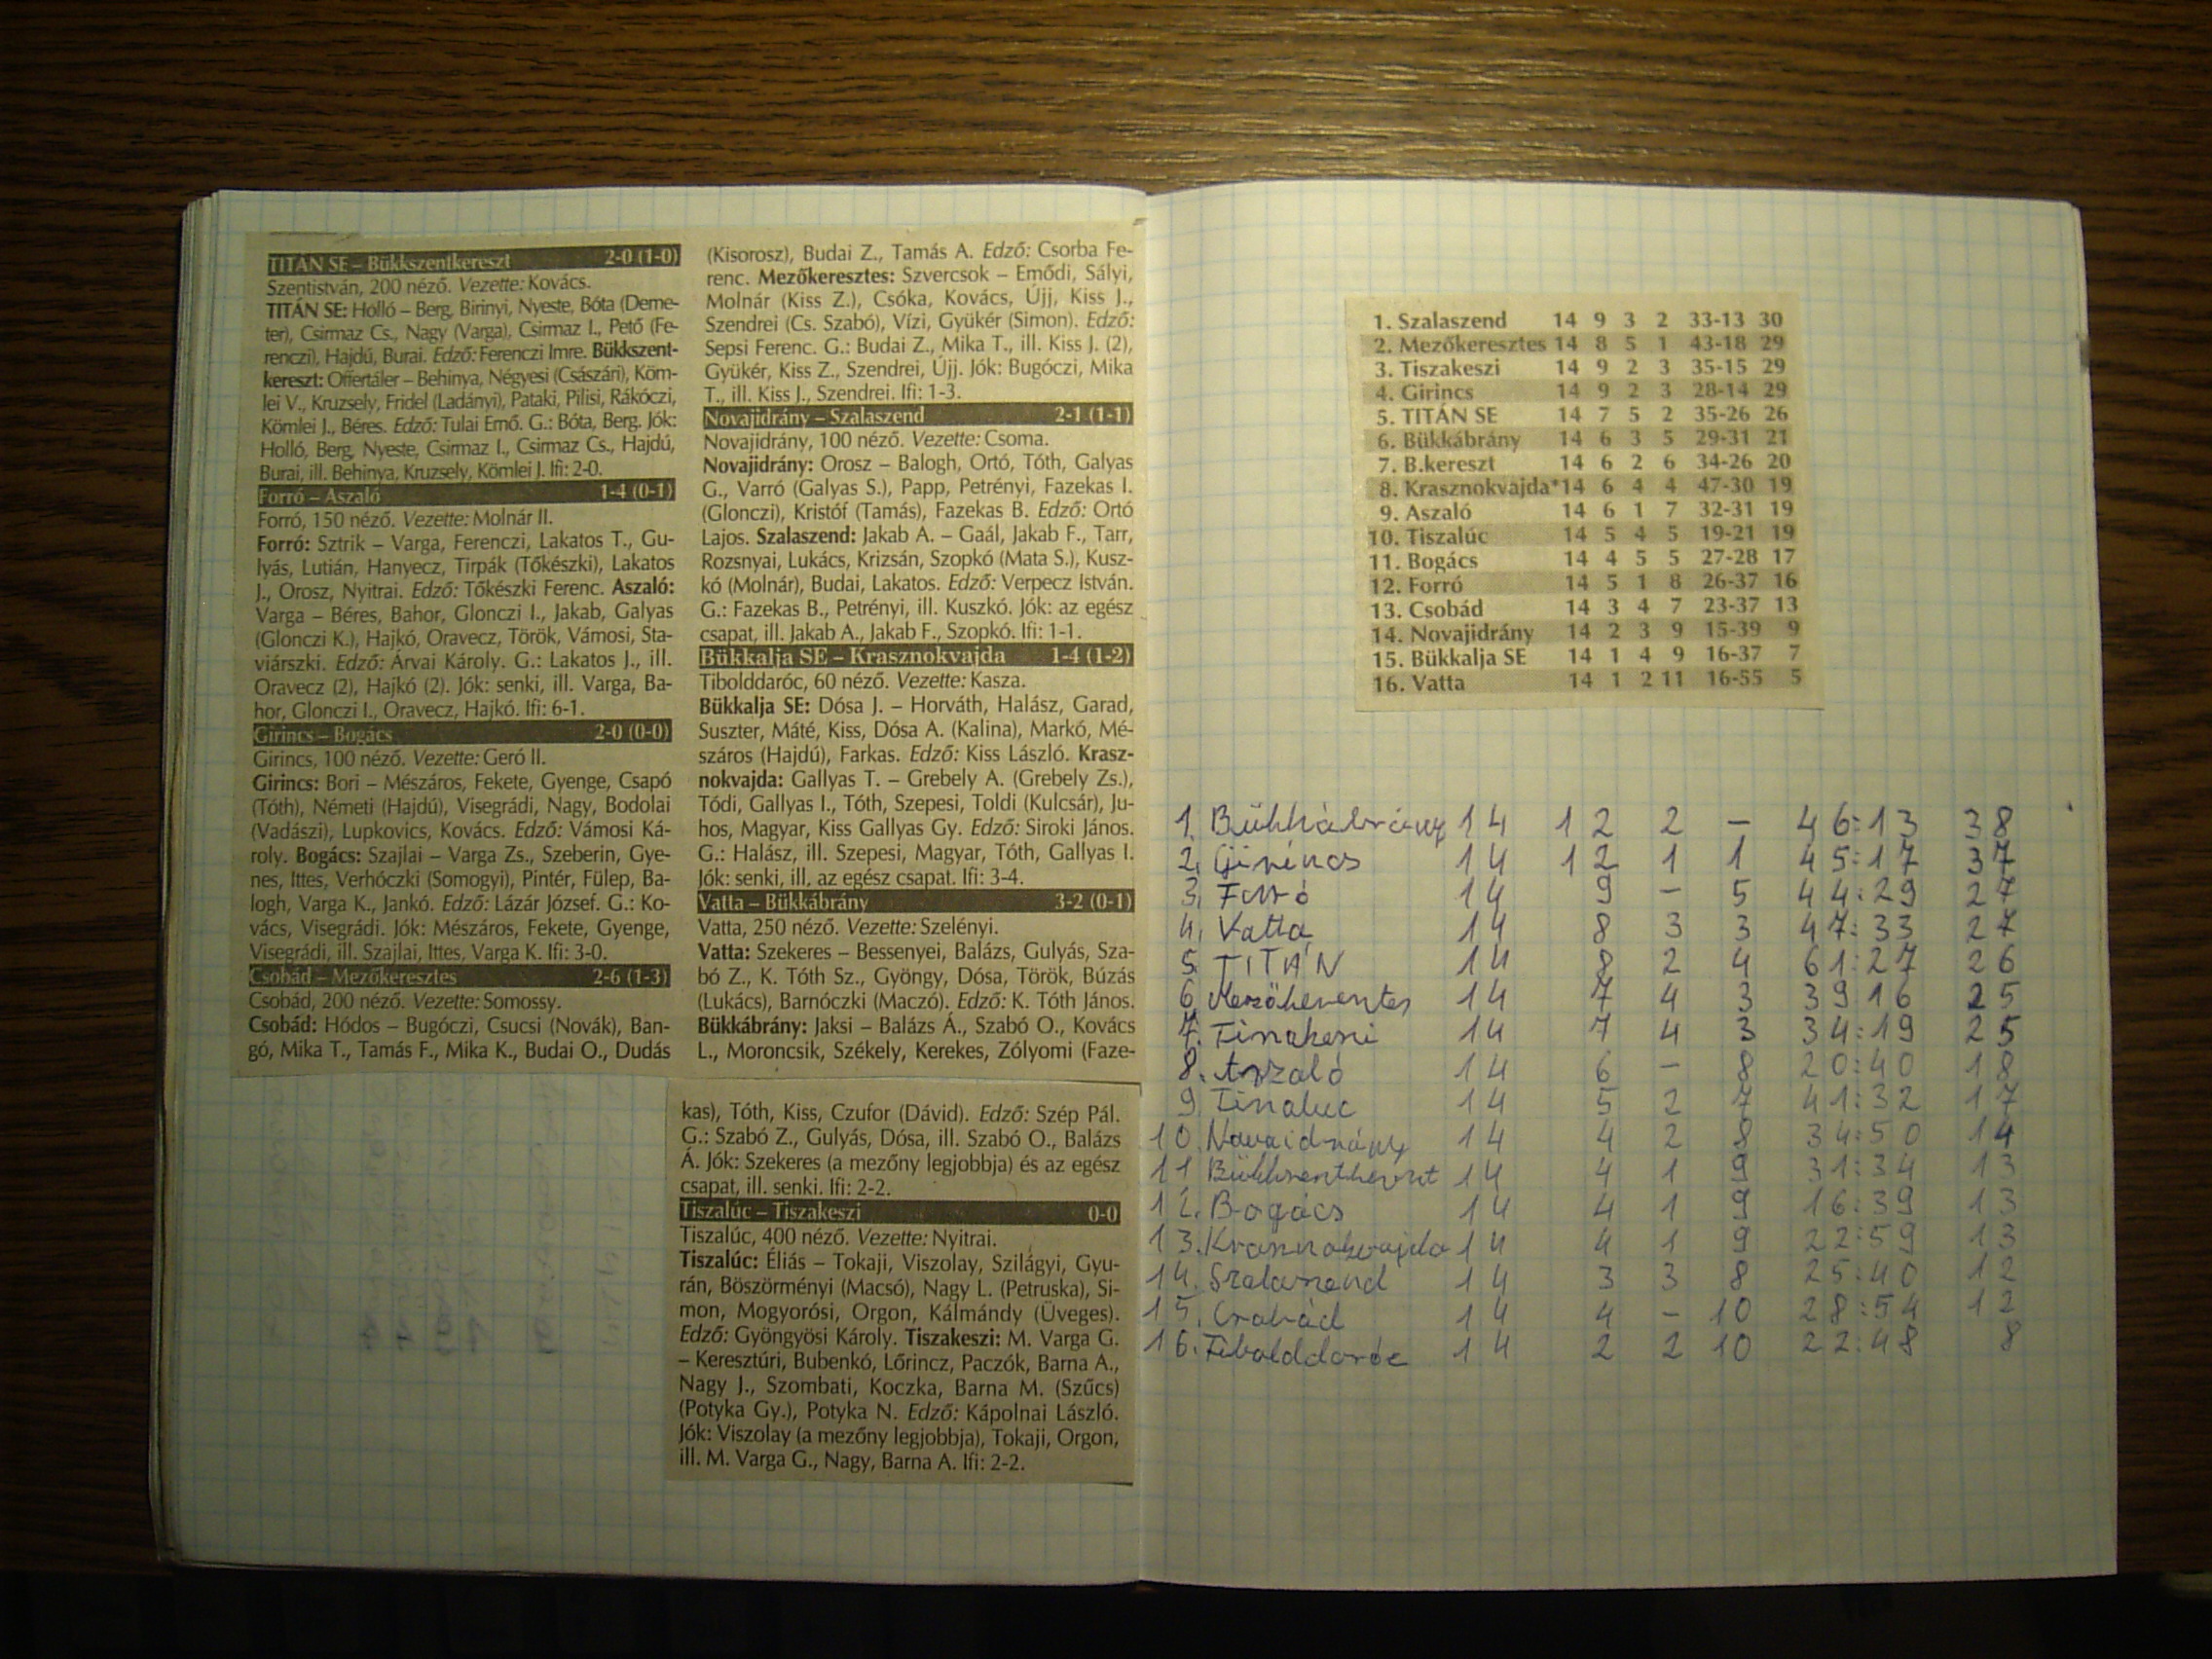 TITÁN SE – Bükkszentkereszt 2-0 (1-0)
Szentistván, 200 néző. Vezette: Kovács.
TITÁN SE: Holló – Berg, Birinyi, Nyeste, Bóta (Deme-
ter), Csirmaz Cs., Nagy (Varga), Csirmaz I., Pető (Fe-
renczi), Hajdú, Burai. Edző: Ferenczi Imre. Bükkszent-
kereszt: Offertáler – Behinya, Négyesi (Császári), Köm-
lei V., Kruzsely, Fridel (Ladányi), Pataki, Pilisi, Rákóczi,
Kömlei J., Béres. Edző: Tulai Ernő. G.: Bóta, Berg. Jók:
Holló, Berg, Nyeste, Csirmaz I., Csirmaz Cs., Hajdú,
Burai, ill. Behinya, Kruzsely, Kömlei J. Ifi: 2-0.
Forró – Aszaló 1-4 (0-1)
Forró, 150 néző. Vezette: Molnár II.
Forró: Sztrik – Varga, Ferenczi, Lakatos T., Gu-
lyás, Lutián, Hanyecz, Tirpák (Tőkészki), Lakatos
J., Orosz, Nyitrai. Edző: Tőkészki Ferenc. Aszaló:
Varga – Béres, Bahor, Glonczi I., Jakab, Galyas
(Glonczi K.), Hajkó, Oravecz, Török, Vámosi, Sta-
viárszki. Edző: Árvai Károly. G.: Lakatos J., ill.
Oravecz (2), Hajkó (2). Jók: senki, ill. Varga, Ba-
hor, Glonczi I., Oravecz, Hajkó. Ifi: 6-1.
Girincs – Bogács 2-0 (0-0)
Girincs, 100 néző. Vezette: Geró II.
Girincs: Bori – Mészáros, Fekete, Gyenge, Csapó
(Tóth), Németi (Hajdú), Visegrádi, Nagy, Bodolai
(Vadászi), Lupkovics, Kovács. Edző: Vámosi Ká-
roly. Bogács: Szajlai – Varga Zs., Szeberin, Gye-
nes, Ittes, Verhóczki (Somogyi), Pintér, Fülep, Ba-
logh, Varga K., Jankó. Edző: Lázár József. G.: Ko-
vács, Visegrádi. Jók: Mészáros, Fekete, Gyenge,
Visegrádi, ill. Szajlai, Ittes, Varga K. Ifi: 3-0.
Csobád – Mezőkeresztes 2-6 (1-3)
Csobád, 200 néző. Vezette: Somossy.
Csobád: Hódos – Bugóczi, Csucsi (Novák), Ban-
gó, Mika T., Tamás F., Mika K., Budai O., Dudás
(Kisorosz), Budai Z., Tamás A. Edző: Csorba Fe-
renc. Mezőkeresztes: Szvercsok – Emődi, Sályi,
Molnár (Kiss Z.), Csóka, Kovács, Újj, Kiss J.,
Szendrei (Cs. Szabó), Vízi, Gyükér (Simon). Edző:
Sepsi Ferenc. G.: Budai Z., Mika T., ill. Kiss J. (2),
Gyükér, Kiss Z., Szendrei, Újj. Jók: Bugóczi, Mika
T., ill. Kiss J., Szendrei. Ifi: 1-3.
Novajidrány – Szalaszend 2-1 (1-1)
Novajidrány, 100 néző. Vezette: Csoma.
Novajidrány: Orosz – Balogh, Ortó, Tóth, Galyas
G., Varró (Galyas S.), Papp, Petrényi, Fazekas I.
(Glonczi), Kristóf (Tamás), Fazekas B. Edző: Ortó
Lajos. Szalaszend: Jakab A. – Gaál, Jakab F., Tarr,
Rozsnyai, Lukács, Krizsán, Szopkó (Mata S.), Kusz-
kó (Molnár), Budai, Lakatos. Edző: Verpecz István.
G.: Fazekas B., Petrényi, ill. Kuszkó. Jók: az egész
csapat, ill. Jakab A., Jakab F., Szopkó. Ifi: 1-1.
Bükkalja SE – Krasznokvajda 1-4 (1-2)
Tibolddaróc, 60 néző. Vezette: Kasza.
Bükkalja SE: Dósa J. – Horváth, Halász, Garad,
Suszter, Máté, Kiss, Dósa A. (Kalina), Markó, Mé-
száros (Hajdú), Farkas. Edző: Kiss László. Krasz-
nokvajda: Gallyas T. – Grebely A. (Grebely Zs.),
Tódi, Gallyas I., Tóth, Szepesi, Toldi (Kulcsár), Ju-
hos, Magyar, Kiss Gallyas Gy. Edző: Siroki János.
G.: Halász, ill. Szepesi, Magyar, Tóth, Gallyas I.
Jók: senki, ill. az egész csapat. Ifi: 3-4.
Vatta – Bükkábrány 3-2 (0-1)
Vatta, 250 néző. Vezette: Szelényi.
Vatta: Szekeres – Bessenyei, Balázs, Gulyás, Sza-
bó Z., K. Tóth Sz., Gyöngy, Dósa, Török, Búzás
(Lukács), Barnóczki (Maczó). Edző: K. Tóth János.
Bükkábrány: Jaksi – Balázs Á., Szabó O., Kovács
L., Moroncsik, Székely, Kerekes, Zólyomi (Faze-
kas), Tóth, Kiss, Czufor (Dávid). Edző: Szép Pál.
G.: Szabó Z., Gulyás, Dósa, ill. Szabó O., Balázs
Á. Jók: Szekeres (a mezőny legjobbja) és az egész
csapat, ill. senki. Ifi: 2-2.
Tiszalúc – Tiszakeszi 0-0
Tiszalúc, 400 néző. Vezette: Nyitrai.
Tiszalúc: Éliás – Tokaji, Viszolay, Szilágyi, Gyu-
rán, Böszörményi (Macsó), Nagy L. (Petruska), Si-
mon, Mogyorósi, Orgon, Kálmándy (Üveges).
Edző: Gyöngyösi Károly. Tiszakeszi: M. Varga G.
– Keresztúri, Bubenkó, Lőrincz, Paczók, Barna A.,
Nagy J., Szombati, Koczka, Barna M. (Szűcs)
(Potyka Gy.), Potyka N. Edző: Kápolnai László.
Jók: Viszolay (a mezőny legjobbja), Tokaji, Orgon,
ill. M. Varga G., Nagy, Barna A. Ifi: 2-2.
1. Szalaszend 14 9 3 2 33-13 30
2. Mezőkeresztes 14 8 5 1 43-18 29
3. Tiszakeszi 14 9 2 3 35-15 29
4. Girincs 14 9 2 3 28-14 29
5. TITÁN SE 14 7 5 2 35-26 26
6. Bükkábrány 14 6 3 5 29-31 21
7. B.kereszt 14 6 2 6 34-26 20
8. Krasznokvajda*14 6 4 4 47-30 19
9. Aszaló 14 6 1 7 32-31 19
10. Tiszalúc 14 5 4 5 19-21 19
11. Bogács 14 4 5 5 27-28 17
12. Forró 14 5 1 8 26-37 16
13. Csobád 14 3 4 7 23-37 13
14. Novajidrány 14 2 3 9 15-39 9
15. Bükkalja SE 14 1 4 9 16-37 7
16. Vatta 14 1 2 11 16-55 5
1. Bükkábrány 14 12 2 – 46:13 38
2. Girincs 14 12 1 1 45:17 37
3. Forró 14 9 – 5 44:29 27
4. Vatta 14 8 3 3 47:33 27
5. TITÁN 14 8 2 4 61:27 26
6. Mezőkeresztes 14 7 4 3 39:16 25
7. Tiszakeszi 14 7 4 3 34:19 25
8. Aszaló 14 6 – 8 20:40 18
9. Tiszaluc 14 5 2 7 41:32 17
10. Novaidrány 14 4 2 8 34:50 14
11. Bükkszentkereszt 14 4 1 9 31:34 13
12. Bogács 14 4 1 9 16:39 13
13. Krasznokvajda 14 4 1 9 22:59 13
14. Szalaszend 14 3 3 8 25:40 12
15. Csobád 14 4 – 10 28:54 12
16. Tibolddaróc 14 2 2 10 22:48 8